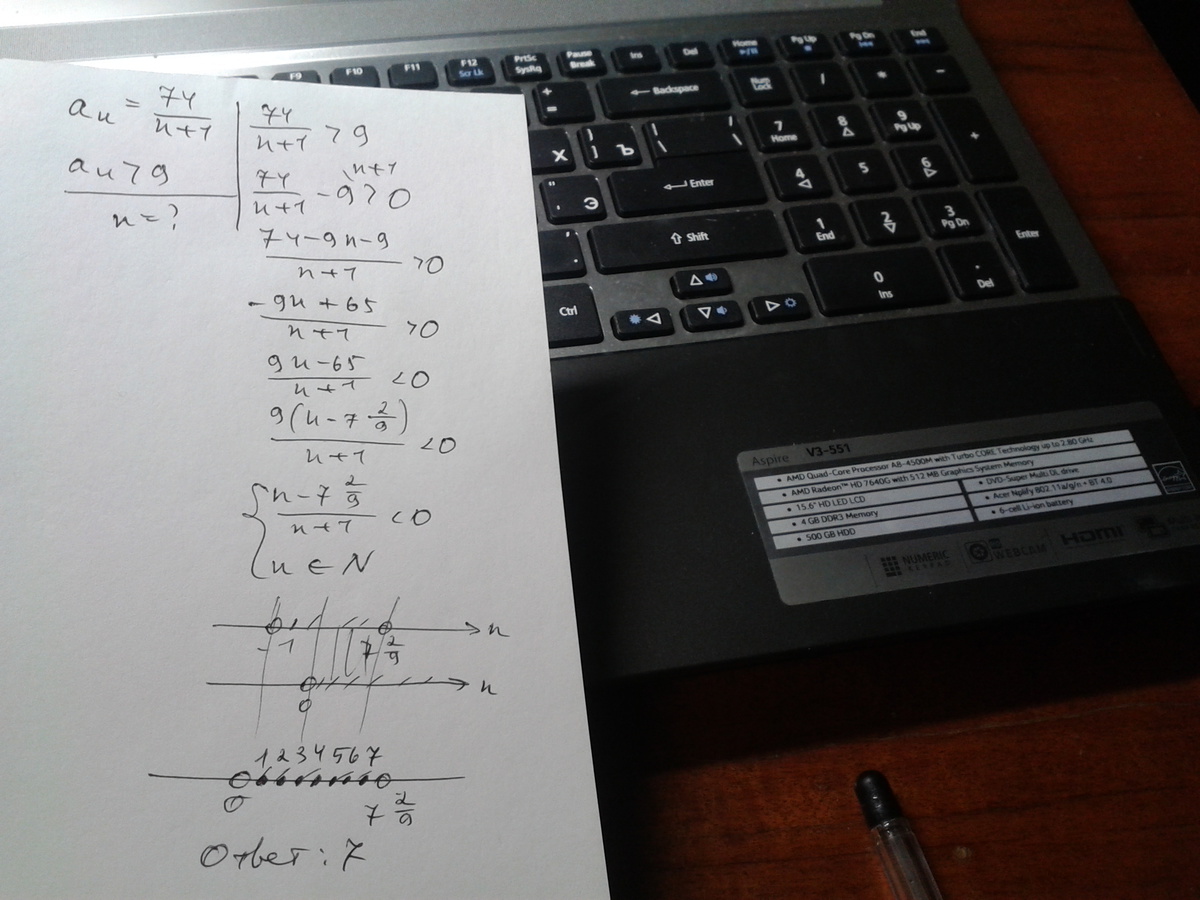 aₙ = 74/(n+1)
aₙ > 9
n = ?
74/(n+1) > 9
74/(n+1) - 9 \n+1 > 0
(74-9n-9)/(n+1) > 0
(-9n+65)/(n+1) > 0
(9n-65)/(n+1) < 0
9(n-7 2/9)/(n+1) < 0
{ (n-7 2/9)/(n+1) < 0
n ∈ N
-1 7 2/9 n
0 n
1 2 3 4 5 6 7
0 7 2/9
Ответ: 7
F9 F10 F11 F12 Scr Lk PrtSc SysRq Pause Break Ins Del Home Pg Up Pg Dn End
+ = ← Backspace Num Lock / * -
Х } ] Ъ | \ / \ 7 Home 8 9 Pg Up +
" ' Э ← Enter 4 5 6
⇧ Shift 1 End 2 3 Pg Dn Enter
Ctrl 0 Ins . Del
Aspire V3-551
• AMD Quad-Core Processor A8-4500M with Turbo CORE Technology up to 2.80 GHz
• AMD Radeon™ HD 7640G with 512 MB Graphics System Memory
• 15.6" HD LED LCD
• DVD-Super Multi DL drive
• 4 GB DDR3 Memory
• Acer Nplify 802.11a/g/n + BT 4.0
• 500 GB HDD
• 6-cell Li-ion battery
NUMERIC KEYPAD
HD WEBCAM
HDMI